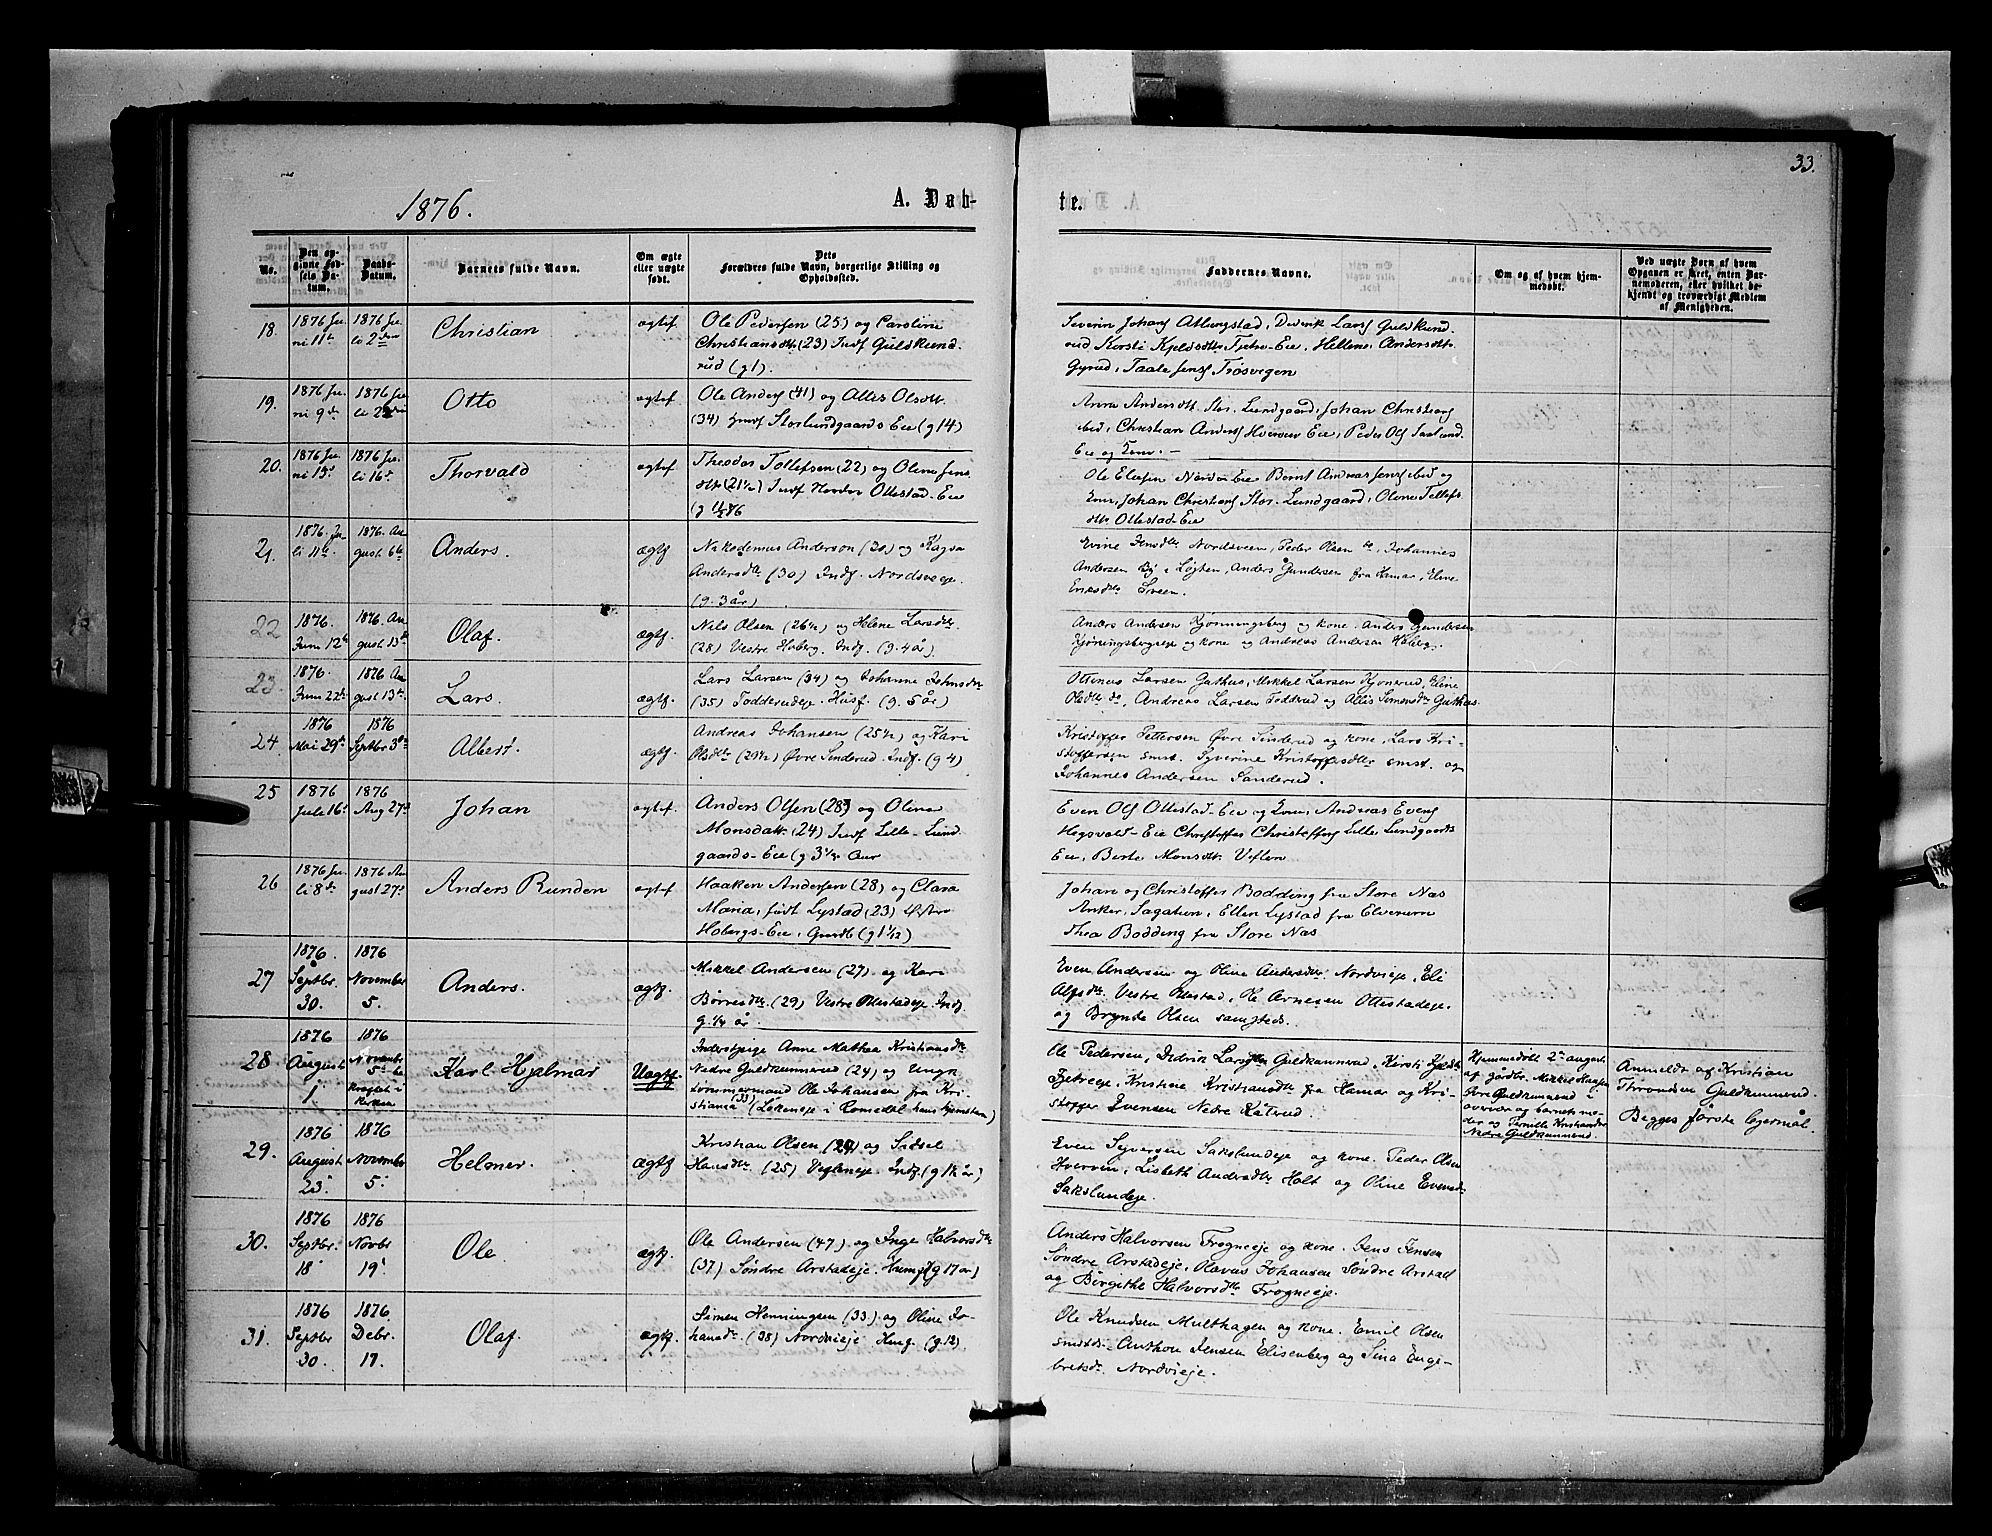 33.
1876.
A. Døb-
te.
No.
Den opgivne Fødsels Datum.
Daabs-Datum.
Barnets fulde Navn.
Om ægte eller uægte født.
Dets Forældres fulde Navn, borgerlige Stilling og Opholdssted.
Faddernes Navne.
Om og af hvem hjemmedøbt.
Ved uægte Børn af hvem Opgaven er skeet, enten Barnemoderen, eller hvilket bekjendt og troværdigt Medlem af Menigheden.
18. 1876 Juni 11te 1876 Juli 2den Christian ægtef. Ole Pedersen (25) og Caroline
Christiansdtr (23) Indf Gulskund
rud (g 1).
Severin Johans Atlungstad, Diderik Lars Guldkund
rud Kersti Kjeldsdtr Fjetre-Eie, Hellene Andersdtr
Gyrud, Taale Jens Trøsvegen
19. 1876 Juni 9de 1876 Juli 2den Otto ægtef. Ole Anders (41) og Alles Olsdtr
(34) Indf Storlundgaards Eie (g 14)
Anna Andersdtr Stor Lundgaard, Johan Christians
ibid, Christian Anders Hverven Eie, Peder Ols Saxlund
Eie og Kone. -
20. 1876 Juni 15de 1876 Juli 16de Thorvald ægtef. Theodor Tollefsen (22) og Oline Jens
dtr (21 1/2) Indf Nordre Ottestad-Eie
(g 1/2 76
Ole Elefsen Nordvi-Eie Bernt Andreas Jens ibid og
Kone, Johan Christians Stor-Lundgaard, Olene Tellefs
dtr Ottestad-Eie
21. 1876. Juli 11te 1876. August 6te Anders. ægtf. Nikodemus Anderson (30) og Kagsa
Andersdtr (30) Indf. Nordsveje.
(g. 3 år)
Evine Jensdtr Nordsveen, Peder Olsen do, Johannes
Andersen By i Løjten, Anders Gundersen fra Hamar, Eline
Eriksdtr Sveen.
22 1876. Juni 12te 1876. August 13de Olaf. ægtf. Nils Olsen (26 1/2) og Helene Larsdtr
(28) Vestre Hoberg. Indf. (g. 4 år).
Anders Andersen Kjønningsberg og kone. Anders Gundersen
Kjøningsbergseje og kone og Andreas Andersen Hoberg.
23. 1876. Juni 22de 1876 August 13de Lars. ægtf. Lars Larsen (34) og Johanne Johnsdtr
(35) Todderudeje. Husf. (g. 5 år)
Ottinus Larsen Guthus, Mikkel Larsen Kjonerud, Eline
Olsdtr do, Andreas Larsen Todderud og Allis Simensdtr Guthus.
24 1876 Mai 29de 1876 Septbr 3de Albert. ægtf. Andreas Johansen (25 1/2) og Kari
Olsdtr (29 1/2) Øvre Sinderud. Indf. (g 4)
Kristoffer Pettersen Øvre Sinderud og kone, Lars Kri-
stoffersen smst. Syverine Kristoffersdtr smst. og
Johannes Andersen Sanderud.
25 1876 Jule 16de 1876 Aug 27de Johan ægtef Anders Olsen (28) og Olina
Monsdatt. (24) Indf Lille-Lund
gaards-Eie (g 3 1/2 Aar
Even Ols Ottestad-Eie og Kone, Andreas Evens
Hogsvold-Eie Christoffer Christoffers Lille Lundgaards
Eie, Berte Monsdtr Veflen
26 1876 Juli 8de 1876 August 27de Anders Runden ægtef. Haaken Andersen (28) og Clara
Maria, født Lystad (23) Østre
Hobergs-Eie, Gaardb (g 1 1/12)
Johan og Christoffer Bodding fra Store Næs
Anker, Sagatun, Ellen Lystad fra Elverum
Thea Bodding fra Store Næs
27 1876. Septbr. 30. 1876 November 5. Anders. ægtf. Mikkel Andersen (27) og Kari
Børresdtr (29) Vestre Ottestadeje Indf.
g. 1/4 år.
Even Andersen og Oline Andersdtr Nordvieje, Eli
Alfsdtr Vestre Ottestad, Ole Arnesen Ottestadeje
og Brynte Olsen samsteds.
28 1876 August 1 1876 Novembr 5te kristnet i kirken Karl Hjalmar Uægtf. Inderstpige Anne Mathea Kristiansdtr
Nedre Guldkunnerud (24) og Ungk
tømmermand Ole Johansen fra Kri-
stiania (33) (Løkeneje i Romedal hans hjemstavn)
Ole Pedersen, Didrik Larsen Guldkunnrud, Kirsti Kjeldsdtr
Fjetreeje, Kristine Kristiansdtr fra Hamar og Kri-
stoffer Ivensen Nedre Kåterud.
Hjemmedøbt 2den august
af gårdbr. Mikkel Hansen
Øvre Guldkunnerud i
overvær og barnets mo-
der og Pernille Kristiansdtr
Nedre Guldkunnerud.
Anmeldt af Kristian
Throndsen Guldkunnerud.
Begges første lejermål.
29. 1876 August. 23. 1876 November 5. Helmer. ægtf. Kristian Olsen (24) og Sidsel
Hansdtr (25) Vefleneje. Indf. (g 1 1/2 år)
Even Syversen Sakslundeje og kone. Peder Olsen
Hverven, Lisbeth Andersdtr Holt og Oline Evensdtr
Sakslundeje.
30. 1876 Septbr. 18 1876 Novbr 19 Ole ægtf. Ole Andersen (47) og Inge Halvorsdtr
(37) Søndre Arstadeje. Husm. (g 17 år)
Anders Halvorsen Frogneeje og kone. Jens Jensen
Søndre Arstadeje, Olavus Johansen Søndre Arstad
og Børgithe Halvorsdtr Frogneeje.
31. 1876 Septbr 30. 1876 Debr. 17. Olaf. ægtf. Simen Henningsen (33) og Oline Jo-
hansdtr (38) Nordvieje Husf. (g. 12).
Ole Knudsen Multhagen og kone. Emil Olsen
smsteds. Anthon Jensen Elisenberg og Sina Enge-
bretsdtr Nordvieje.